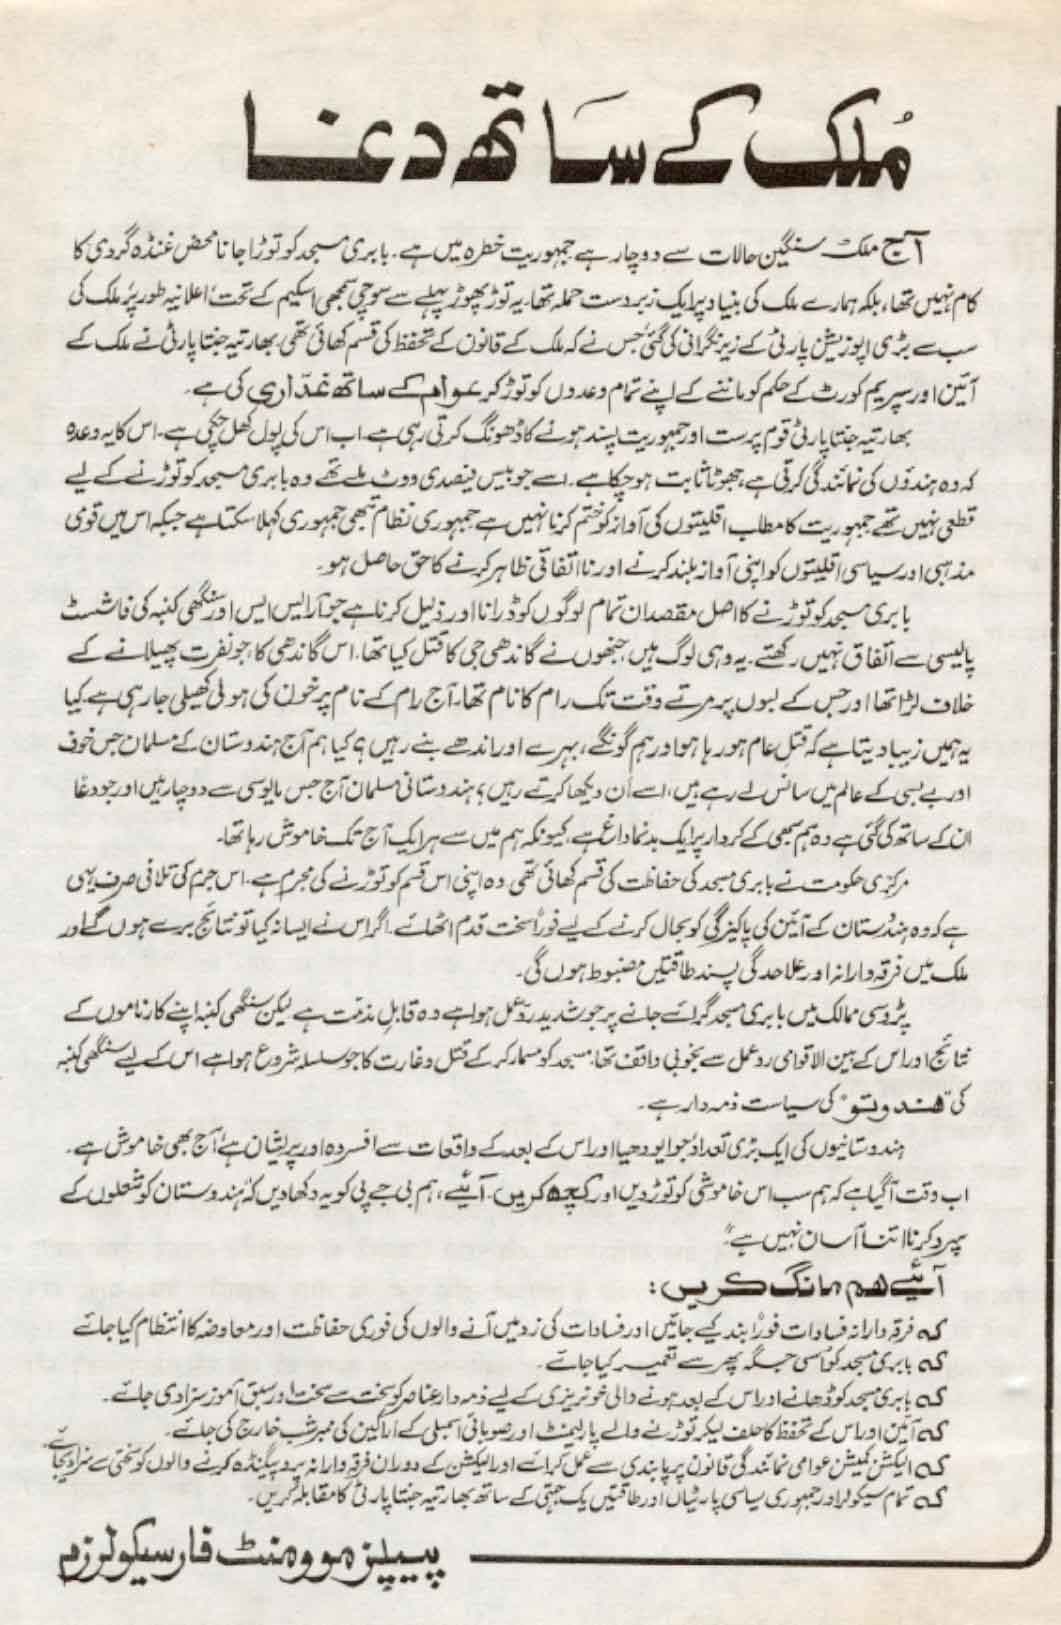 مُلک کے ساتھ دغا
آج ملک سنگین حالات سے دوچار ہے جمہوریت خطرہ میں ہے۔ بابری مسجد کو توڑا جانا محض غنڈہ گردی کا
کام نہیں تھا، بلکہ ہمارے ملک کی بنیاد پر ایک زبردست حملہ تھا۔ یہ توڑ پھوڑ پہلے سے سوچی سمجھی اسکیم کے تحت، اعلانیہ طور پر، ملک کی
سب سے بڑی اپوزیشن پارٹی کے زیر نگرانی کی گئی، جس نے کہ ملک کے قانون کے تحفظ کی قسم کھائی تھی۔ بھارتیہ جنتا پارٹی نے ملک کے
آئین اور سپریم کورٹ کے حکم کو ماننے کے اپنے تمام وعدوں کو توڑ کر عوام کے ساتھ غدّاری کی ہے۔
بھارتیہ جنتا پارٹی قوم پرست اور جمہوریت پسند ہونے کا ڈھونگ کرتی رہی ہے۔ اب اس کی پول کھل چکی ہے۔ اس کا یہ وعدہ
کہ وہ ہندوؤں کی نمائندگی کرتی ہے، جھوٹا ثابت ہو چکا ہے۔ اسے جو بیس فیصدی ووٹ ملے تھے وہ بابری مسجد کو توڑنے کے لیے
قطعی نہیں تھے۔ جمہوریت کا مطلب اقلیتوں کی آواز کو ختم کرنا نہیں ہے۔ جمہوری نظام تبھی جمہوری کہلا سکتا ہے جبکہ اس میں قومی
مذہبی اور سیاسی اقلیتوں کو اپنی آواز بلند کرنے اور نااتفاقی ظاہر کرنے کا حق حاصل ہو۔
بابری مسجد کو توڑنے کا اصل مقصد ان تمام لوگوں کو ڈرانا اور ذلیل کرنا ہے جو آر ایس ایس اور سنگھی کنبہ کی فاشسٹ
پالیسی سے اتفاق نہیں رکھتے۔ یہ وہی لوگ ہیں، جنھوں نے گاندھی جی کا قتل کیا تھا۔ اس گاندھی کا، جو نفرت پھیلانے کے
خلاف لڑا تھا اور جس کے لبوں پر مرتے وقت تک رام کا نام تھا۔ آج رام کے نام پر خون کی ہولی کھیلی جا رہی ہے۔ کیا
یہ ہمیں زیبا دیتا ہے کہ قتل عام ہو رہا ہو اور ہم گونگے، بہرے اور اندھے بنے رہیں؟ کیا ہم آج ہندوستان کے مسلمان جس خوف
اور بے بسی کے عالم میں سانس لے رہے ہیں، اسے اَن دیکھا کرتے رہیں؟ ہندوستانی مسلمان آج جس مایوسی سے دوچار ہیں اور جو دغا
ان کے ساتھ کی گئی ہے وہ ہم سبھی کے کردار پر ایک بدنما داغ ہے، کیونکہ ہم میں سے ہر ایک آج تک خاموش رہا تھا۔
مرکزی حکومت نے بابری مسجد کی حفاظت کی قسم کھائی تھی وہ اپنی اس قسم کو توڑنے کی مجرم ہے۔ اس جرم کی تلافی صرف یہی
ہے کہ وہ ہندُستان کے آئین کی پاکیزگی کو بحال کرنے کے لیے فوراً سخت قدم اٹھائے۔ اگر اس نے ایسا نہ کیا تو نتائج برے ہوں گے اور
ملک میں فرقہ وارانہ اور علاحدگی پسند طاقتیں مضبوط ہوں گی۔
پڑوسی ممالک میں بابری مسجد گرائے جانے پر جو شدید ردّ عمل ہوا ہے وہ قابلِ مذمّت ہے لیکن سنگھی کنبہ اپنے کارناموں کے
نتائج اور اس کے بین الاقوامی ردعمل سے بخوبی واقف تھا۔ مسجد کو مسمار کر کے قتل و غارت کا جو سلسلہ شروع ہوا ہے اس کے لیے سنگھی کنبہ
کی "ہندوتو" کی سیاست ذمہ دار ہے۔
ہندوستانیوں کی ایک بڑی تعداد، جو ایودھیا اور اس کے بعد کے واقعات سے افسردہ اور پریشان ہے، آج بھی خاموش ہے۔
اب وقت آ گیا ہے کہ ہم سب اس خاموشی کو توڑ دیں اور کچھ کریں۔ آئیے، ہم بی جے پی کو یہ دکھا دیں کہ "ہندوستان کو شعلوں کے
سپرد کرنا اتنا آسان نہیں ہے"
آئیے ہم مانگ کریں:
کہ فرقہ وارانہ فسادات فوراً بند کیے جائیں اور فسادات کی زد میں آنے والوں کی فوری حفاظت اور معاوضہ کا انتظام کیا جائے
کہ بابری مسجد کو اُسی جگہ پھر سے تعمیر کیا جائے۔
کہ بابری مسجد کو ڈھانے اور اس کے بعد ہونے والی خونریزی کے لیے ذمہ دار عناصر کو سخت سے سخت اور سبق آموز سزا دی جائے۔
کہ آئین اور اس کے تحفظ کا حلف لیکر توڑنے والے پارلیمنٹ اور صوبائی اسمبلی کے اراکین کی ممبرشپ خارج کی جائے۔
کہ الیکشن کمیشن عوامی نمائندگی قانون پر پابندی سے عمل کرائے اور الیکشن کے دوران فرقہ وارانہ پروپیگنڈہ کرنے والوں کو سختی سے سزا دیجائے۔
کہ تمام سیکولر اور جمہوری سیاسی پارٹیاں اور طاقتیں یک جہتی کے ساتھ بھارتیہ جنتا پارٹی کا مقابلہ کریں۔
پیپلز موومنٹ فار سیکولرزم